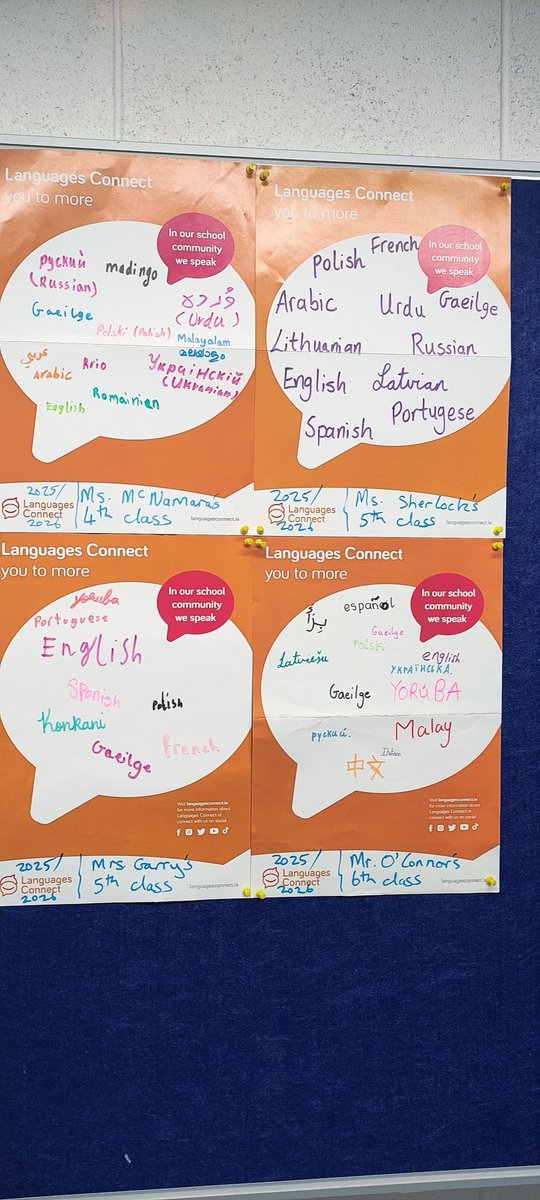 Languages Connect
you to more
In our school
community
we speak
руский
(Russian)
madingo
Gaeilge
(Urdu)
Polski (Polish)
Malayalam
عربي
Arabic
Krio
Українскій
(Ukranian)
Romainien
English
2025/
2026
Languages
Connect
Ms. McNamara's
4th class
languagesconnect.ie
Languages Connect
you to more
In our school
community
we speak
French
Polish
Arabic
Urdu
Gaeilge
Lithuanian
Russian
English
Latvian
Spanish
Portugese
2025/
2026
Languages
Connect
Ms. Sherlock's
5th class
languagesconnect.ie
Languages Connect
you to more
In our school
community
we speak
Yoruba
Portuguese
English
Spanish
Polish
Konkani
Gaeilge
French
Visit languagesconnect.ie
for more information about
Languages Connect or
connect with us on social
2025/
2026
Languages
Connect
Mrs. Garry's
5th class
languagesconnect.ie
Languages Connect
you to more
In our school
community
we speak
español
Gaeilge
Polski
Latviešu
english
УКРАЇНСЬКА
Gaeilge
YORÙBA
руский
Malay
中文
Visit languagesconnect.ie
for more information about
Languages Connect or
connect with us on social
2025/
2026
Languages
Connect
Mr. O'Connor's
6th class
languagesconnect.ie